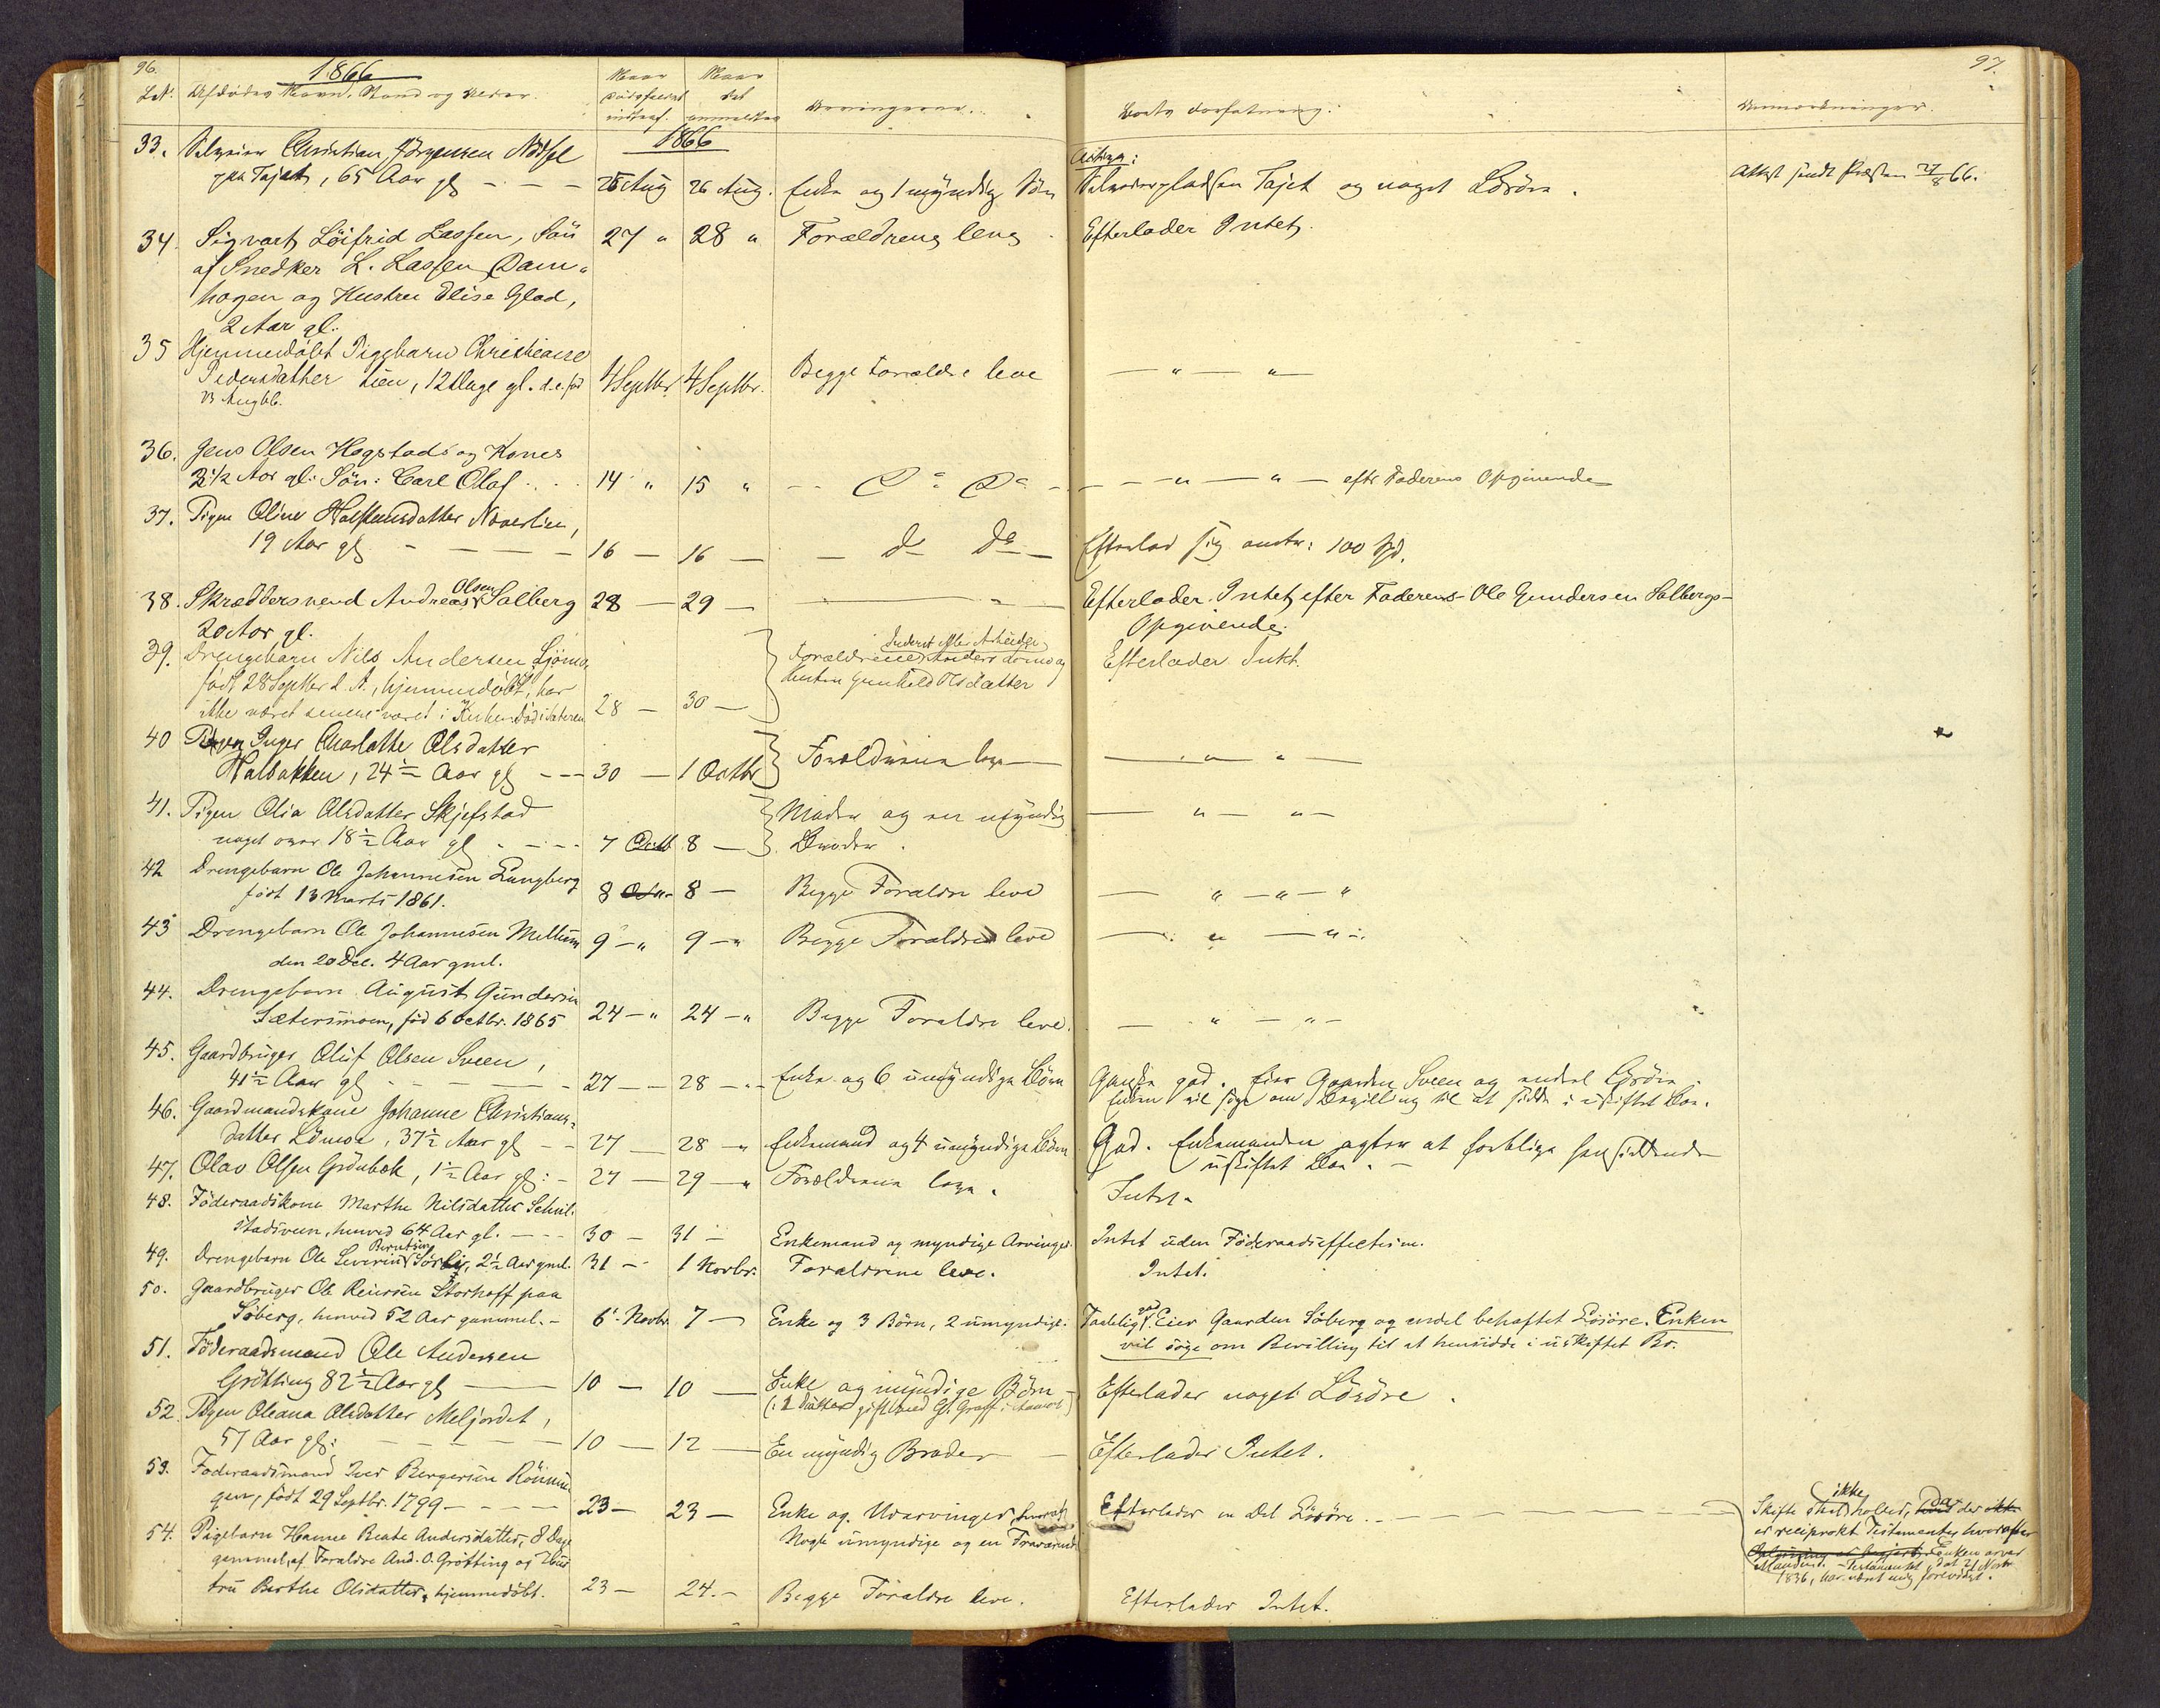 96.
1866
97.
Afdødes Navn, Stand og Alder.
Naar
Naar
det
Arvingerne.
Boets Forfatning.
Anmærkninger.
1866
33. Christian Jörgensen
paa Tajet, 65 Aar gl 25 Aug 26 Aug. Enke og 1 myndig Sön
Tajet og noget Lösöre.
Attest sendt Præsten 27/8 66.
34. Sigvart Löifrid Lassen, Sön 27 " 28 " Forældrene leve Efterlader Intet.
af Snedker L. Lassen Dam-
hagen og Hustru Elise Glad,
2 Aar gl.
35 Hjemmedöbt Pigebarn Christiane
Pedersdatter Lien, 12 Dage gl. d.e. föd 4 Septbr. 4 Septbr. Begge Forældre leve — " — " —
23 Aug 66.
36. Jens Olsen Hogstads og Kones
2 1/2 Aar gl: Sön: Carl Olaf 14 " 15 " — Do Do — — " — " — efter Faderens Opgivende
37. Pigen Oline Halstensdatter
19 Aar gl — 16 — 16 — — do do — Efterlod sig omtr: 100 Spd.
38. Skræddersvend Andreas Olsen Solberg 28 — 29 — Efterlader Intet, efter Faderens - Ole Gundersen Solbergs-
20 Aar gl. Opgivende.
39. Drengebarn Nils Andersen Sjömo,
födt 28 Septbr d. A., hjemmedöbt, har
28 — 30 — Forældrene Anders og
Gunhild Olsdatter Efterlader Intet.
40 Pigen Inger Charlotte Olsdatter
Halbakken, 24 1/2 Aar gl — 30 — 1 Octbr Forældrene leve — — " — " —
41. Pigen Olia Olsdatter Skjefstad
noget over 18 1/2 Aar gl 7 Octb 8 — Moder og en umyndig
Broder. — " — " —
42 Drengebarn Ole Johannesen Langberg
födt 13 Marts 1861. 8 8 — Begge Forældre leve — " — " — "
43 Drengebarn Ole Johannesen Mellum 9 — " 9 — " Begge Forældre leve — " — " —
den 20 Dec. 4 Aar gml.
44. Drengebarn August Gundersen
Sætersmoen, föd 6 Octbr. 1865 24 — " 24 — " Begge Forældre leve. — " — " —
45. Gaardbruger Oluf Olsen Sveen,
41 1/2 Aar gl — 27 — 28 — " — Enke og 6 umyndige Börn Ganske god. Eier Gaarden Sveen og endel Lösöre.
Enken vil söge om Bevilling til at sidde i uskiftet Bo.
46. Gaardmandskone Johanne Christians-
datter Lömoe, 37 1/2 Aar gl — 27 — 28 — " Enkemand og 4 umyndige Börn God. Enkemanden agter at forblive hensiddende
i uskiftet Bo. —
47. Olav Olsen Grönbek, 1 1/2 Aar gl: 27 — 29 — " Forældrene leve. Intet.
48. Föderaadskone Marthe Nilsdatter
henved 64 Aar gl. 30 — 31 — Enkemand og myndige Arvinger. Intet uden Föderaadseffecterne.
49. Drengebarn Ole Severin Berntsen Sörlie, 2 1/2 Aar gml. 31 — 1 Novbr. Forældrene leve. Intet.
50. Gaardbruger Ole Reiersen Storhoff paa
Söberg, henved 52 Aar gammel. — 6 Novbr. 7 — Enke og 3 Börn, 2 umyndige. Taalelig god. Eier Gaarden Söberg og endel behæftet Lösöre. Enken
vil söge om Bevilling til at hensidde i uskiftet Bo.
51. Föderaadsmand Ole Andersen
Grötting 82 1/2 Aar gl — 10 — 10 — Enke og myndige Börn — Efterlader noget Lösöre.
52 Pigen Oleana Olsdatter Meljordet,
57 Aar gl: — 10 — 12 — En myndig Broder — Efterlader Intet.
53. Föderaadsmand Iver Bergersen Rönnin-
gen, födt 29 Septbr. 1799 — 23 — 23 — Enke og Udarvinger, hvoraf Efterlader en Del Lösöre. —
Nogle umyndige og en Fraværende
Skifte skal ikke holdes, da der
er reciprokt Testamente, hvorefter
Enken arver
Manden. - Testamentet, dat. 21 Novbr
1836, har været mig forevist.
54. Pigebarn Hanne Beate Andersdatter, 8 Dage
gammel, af Forældre And. O. Grötting og Hus-
tru Berthe Olsdatter, hjemmedöbt. 23 — 24. — Begge Forældre leve. Efterlader Intet.